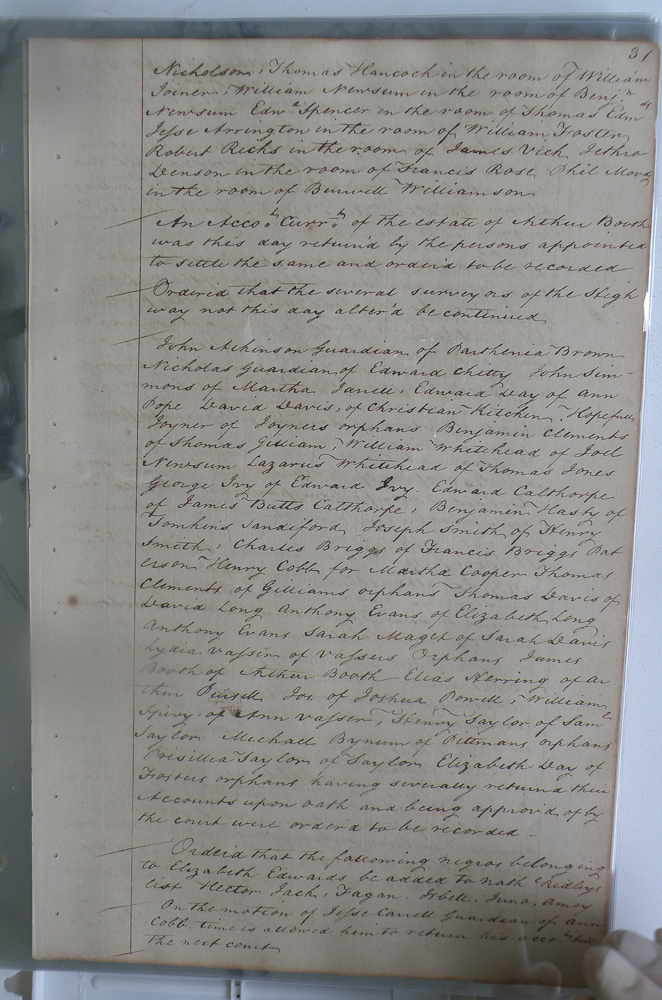 31
Nicholson, Thomas Hancock in the room of William
Joiner, William Newsum in the room of Benjn
Newsum Edwd Spencer in the room of Thomas Edmds
Jesse Arrington in the room of William Foster
Robert Ricks in the room of James Vick Jethro
Denson in the room of Francis Rose Phil Moody
in the room of Burwell Williamson
An Accots Currts of the estate of Arthur Booth
was this day return'd by the persons appointed
to settle the same and order'd to be recorded
Order'd that the several surveyors of the High
way not this day alter'd be continued
John Atkinson Guardian of Parthenia Brown
Nicholas Guardian of Edward Chitty John Sim-
mons of Martha Janell, Edward Day of Ann
Pope David Davis, of Christian Kitchen, Hopefull
Joyner of Joyners orphans Benjamin Clements
of Thomas Gilliam, William Whitehead of Joel
Newsum Lazarus Whitehead of Thomas Jones
George Ivy of Edward Ivy. Edward Calthorpe
of James Butts Calthorpe, Benjamin Hasty of
Tomkins Sandiford, Joseph Smith of Henry
Smith, Charles Briggs of Francis Briggs Pat
erson Henry Cobb for Martha Cooper Thomas
Clements of Gilliams orphans Thomas Davis of
David Long Anthony Evans of Elizabeth Long
Anthony Evans Sarah Maget of Sarah Davis
Lydia Vasser of Vassers Orphans James
Booth of Arthur Booth Elias Herring of Ar
thur Jos. of Joshua Powell, William
Spivy of Ann Vasser, Henry Taylor of Saml
Taylor Michael Bynum of Pittmans orphans
Prisillia Taylor of Taylor Elizabeth Day of
Fosters orphans having severally return'd their
Accounts upon oath and being approv'd of by
the court were order'd to be recorded -
Order'd that the following negros belonging
to Elizabeth Edwards be added to nath Ridleys
list Hector Jack, Fagan. Isbell, Juno, Amey
On the motion of Jesse Carrell Guardian of Ann
Cobb. time is allowed him to return his accots till
the next court